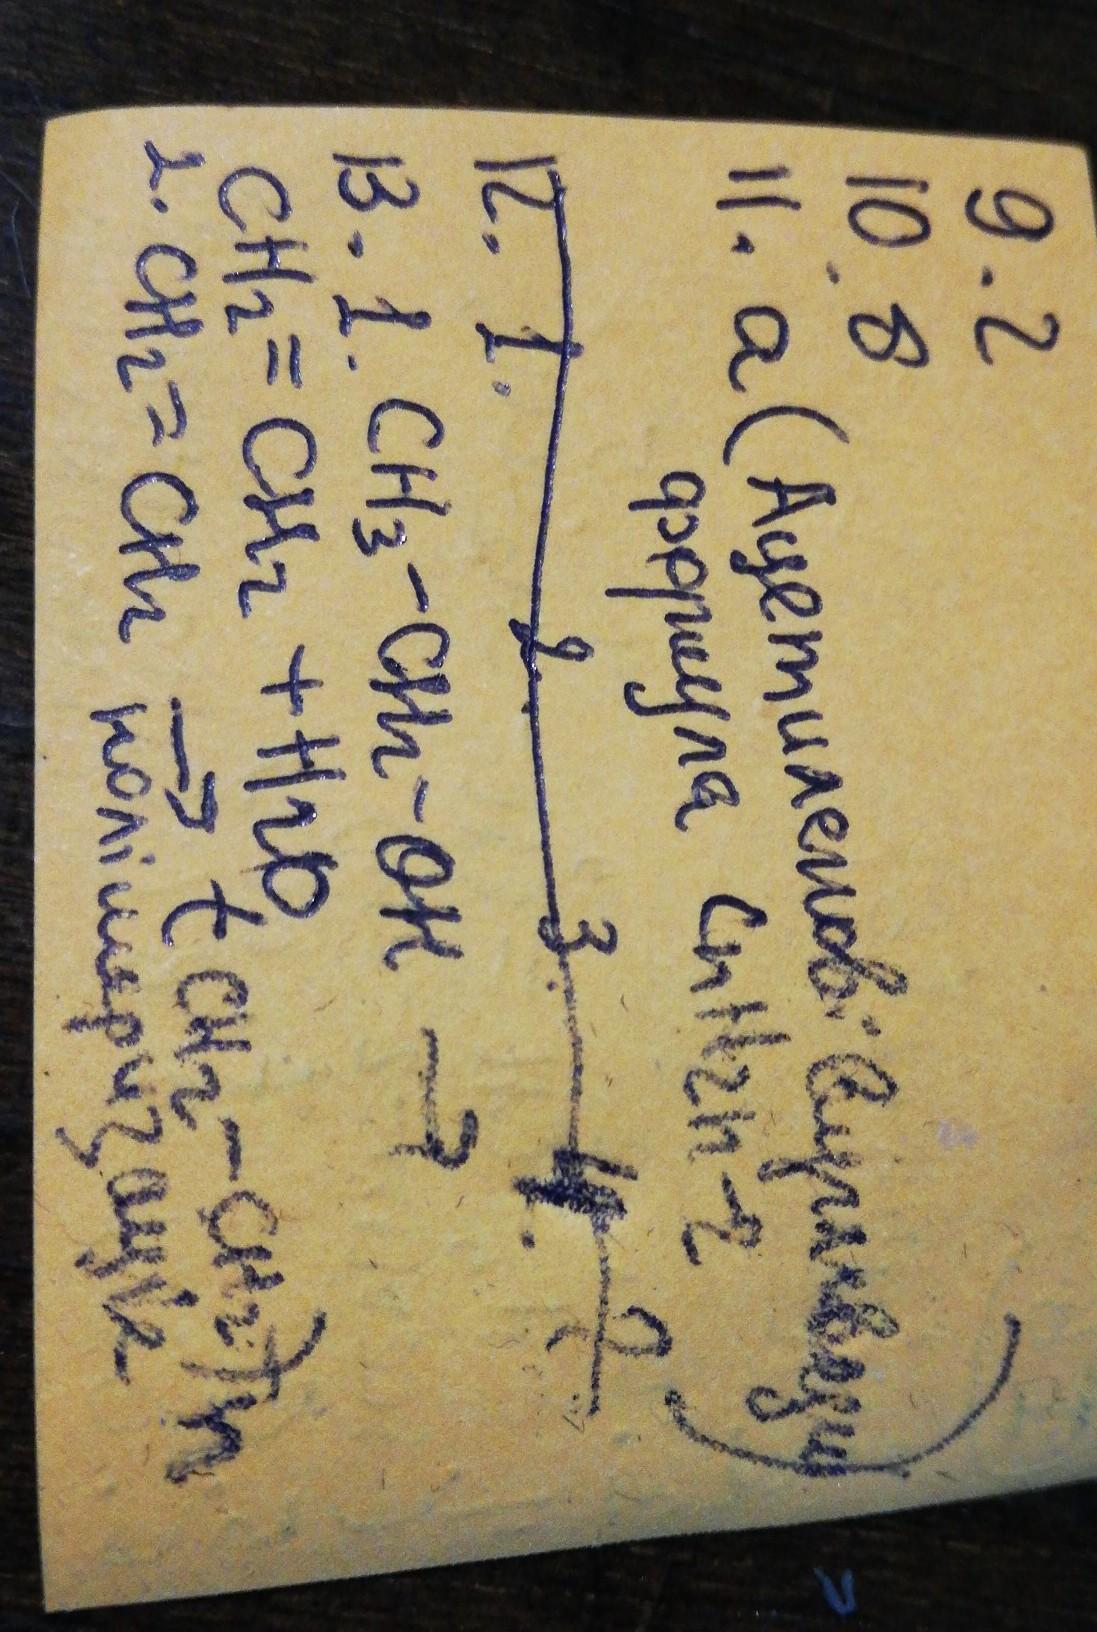 9. 2
10. 8
11. a (Ацетиленові вуглеводи
формула CnH2n-2)
12. 1. 2. 3. 4.
13. 1. CH3-CH2-OH →
CH2=CH2 + H2O
2. CH2=CH2 → t CH2-CH2)n
полімеризація